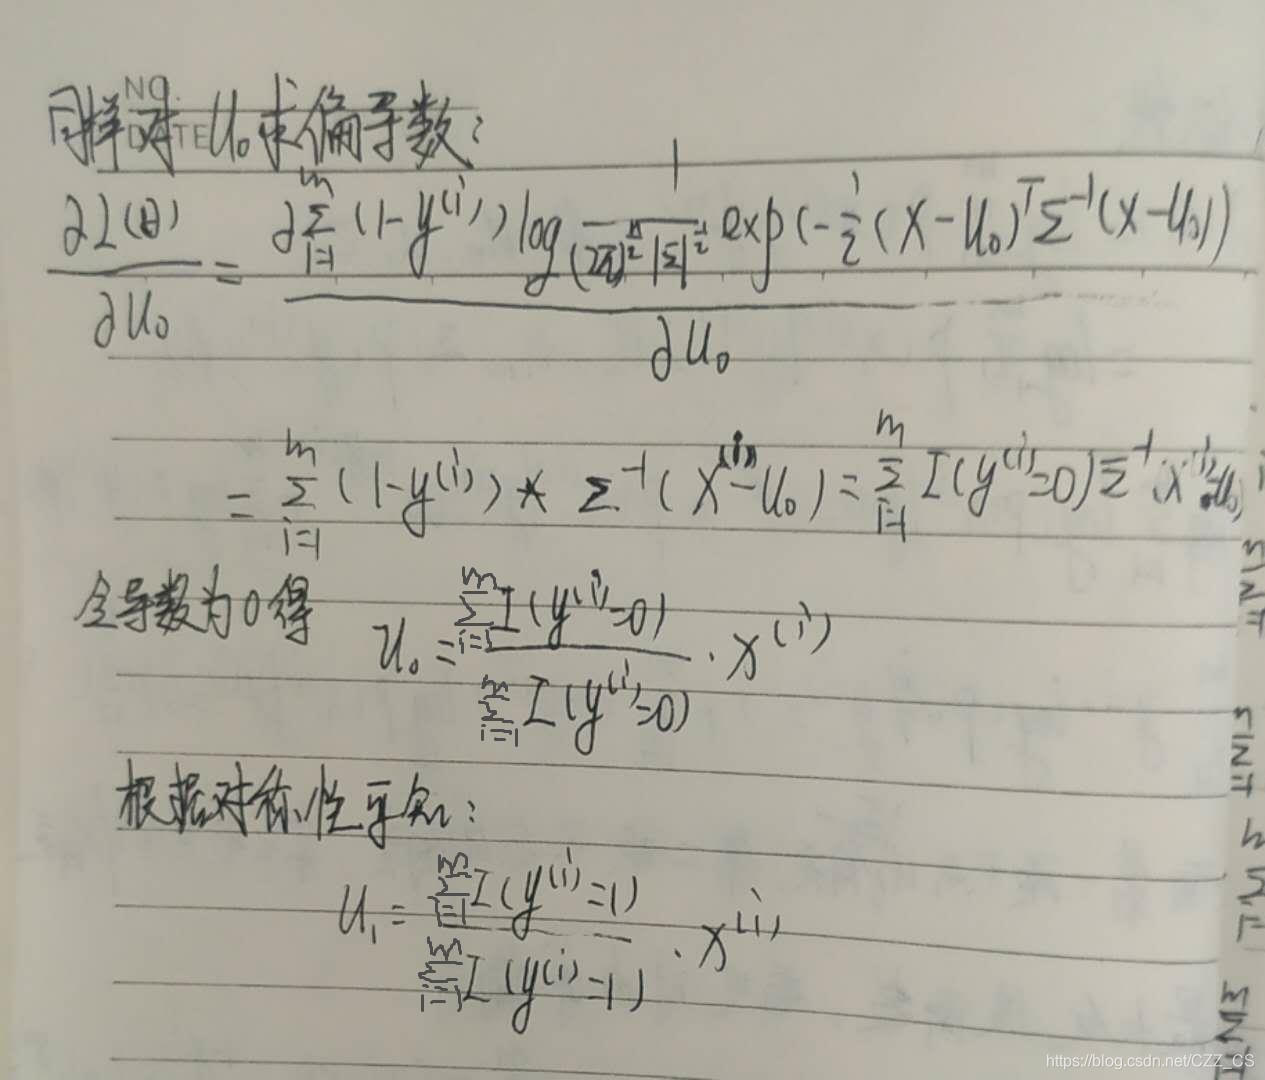 NO.
DATE
同样对 U₀求偏导数:
∂L(θ)/∂U₀ = ∂∑_{i=1}^{m} (1-y^{(i)}) log 1/((2π)^{n/2}|Σ|^{1/2}) exp(-1/2(X-U₀)^TΣ^{-1}(X-U₀)) / ∂U₀
= ∑_{i=1}^{m} (1-y^{(i)}) * Σ^{-1}(X^{(i)}-U₀) = ∑_{i=1}^{m} I(y^{(i)}=0)Σ^{-1}(X^{(i)}-U₀)
令导数为0得 U₀ = ∑_{i=1}^{m} I(y^{(i)}=0) / ∑_{i=1}^{m} I(y^{(i)}=0) · X^{(i)}
根据对称性可知:
U₁ = ∑_{i=1}^{m} I(y^{(i)}=1) / ∑_{i=1}^{m} I(y^{(i)}=1) · X^{(i)}
https://blog.csdn.net/CZZ_CS